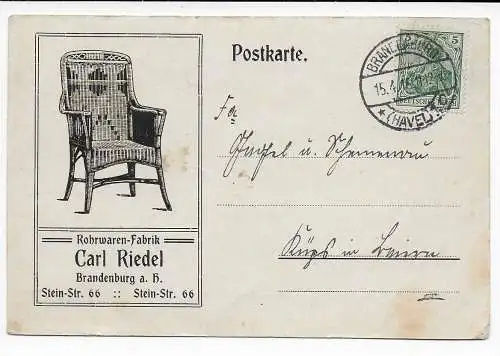 Postkarte.
5
BRANDENBURG
15.4.
(HAVEL)
Fa
u. Schemenau
Küps in Baiern
Rohrwaren-Fabrik
Carl Riedel
Brandenburg a. H.
Stein-Str. 66 :: Stein-Str. 66